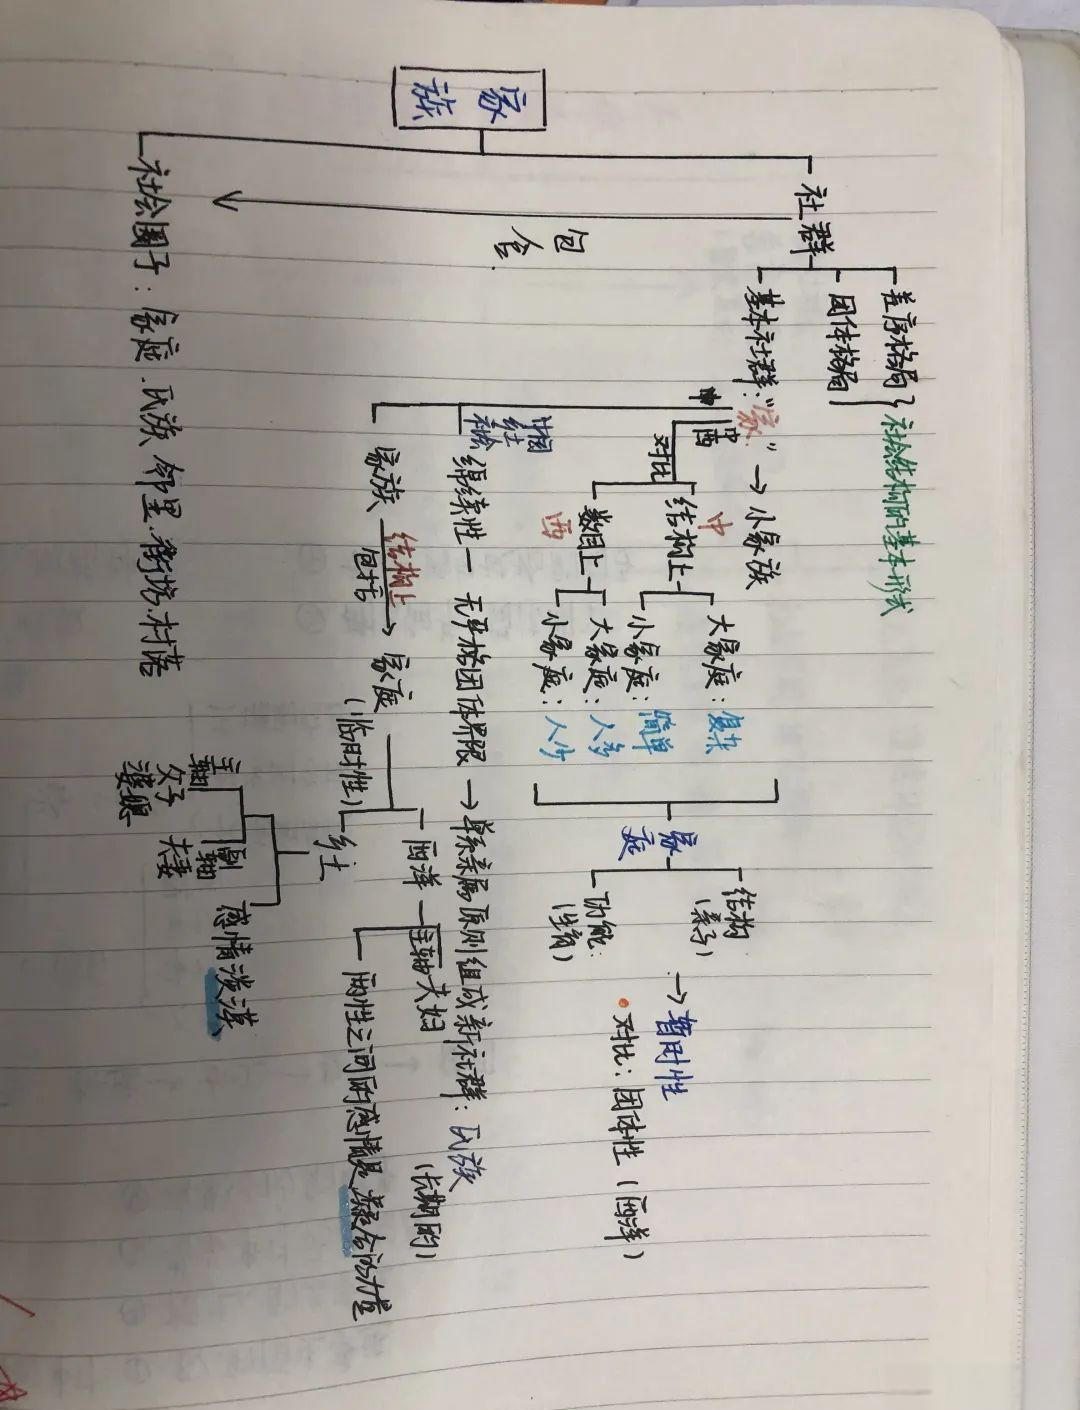 家族
社群
差序格局
团体格局
社会结构的基本形式
基本社群:“家”→小家族
中
西
对比
中
结构上
大家庭:复杂
小家庭:简单
西
数目上
大家庭:人多
小家庭:人少
家庭
结构
(亲子)
功能:
(生育)
→暂时性
·对比:团体性(西洋)
中
中国
乡土
社会
绵续性—无严格团体界限→单系亲属原则组成新社群:氏族
(长期的)
家族
结构上
包括
→家庭
(临时性)
西洋
主轴夫妇
两性之间的感情是凝合的力量
乡土
主轴
父子
婆媳
副轴
夫妻
感情淡漠
包含
社会圈子:家庭、氏族、邻里、街坊、村落